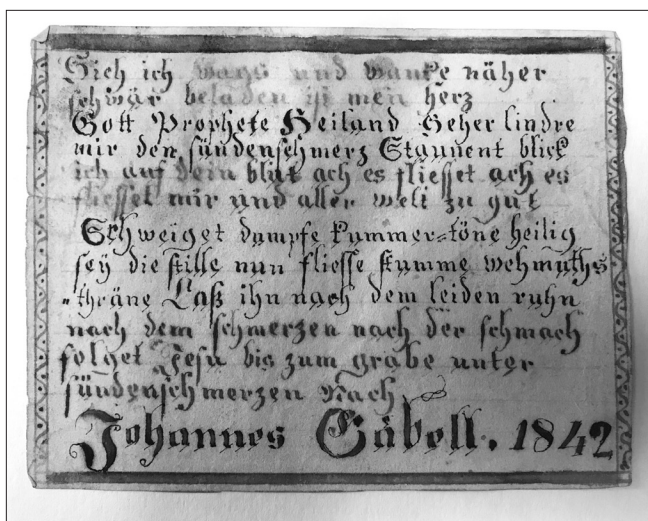 Sieh ich wags und wanke näher
schwär beladen ist mein herz
Gott Prophete Heiland Seher lindre
mir den sündenschmerz Staunent blick
ich auf dein blut ach es fliesset ach es
fliesset mir und aller welt zu gut
Schweiget dumpfe kummer=töne heilig
sey die stille nun fliesse stumme wehmuths
=thräne Laß ihn nach dem leiden ruhn
nach dem schmerzen nach der schmach
folget Jesu bis zum grabe unter
sündenschmerzen Nach
Johannes Gäbell. 1842